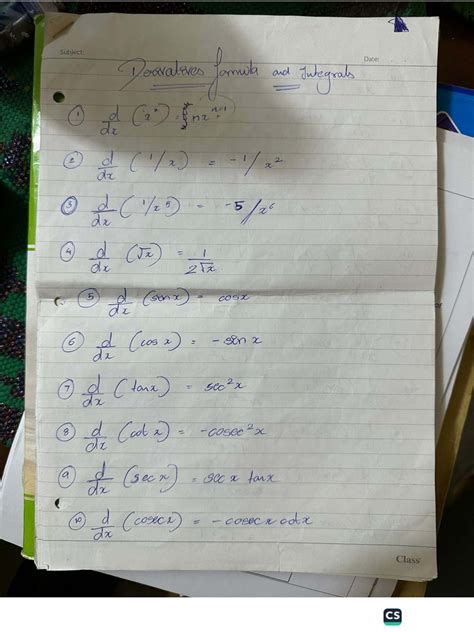 Subject:
Date:
Derivatives formula and Integrals
① d/dx (xⁿ) = nxⁿ⁻¹
② d/dx (1/x) = -1/x²
③ d/dx (1/x⁵) = -5/x⁶
④ d/dx (√x) = 1/2√x
⑤ d/dx (sinx) = cosx
⑥ d/dx (cos x) = -sin x
⑦ d/dx (tanx) = sec²x
⑧ d/dx (cot x) = -cosec²x
⑨ d/dx (sec x) = sec x tanx
⑩ d/dx (cosec x) = - cosec x cotx
Class
CS